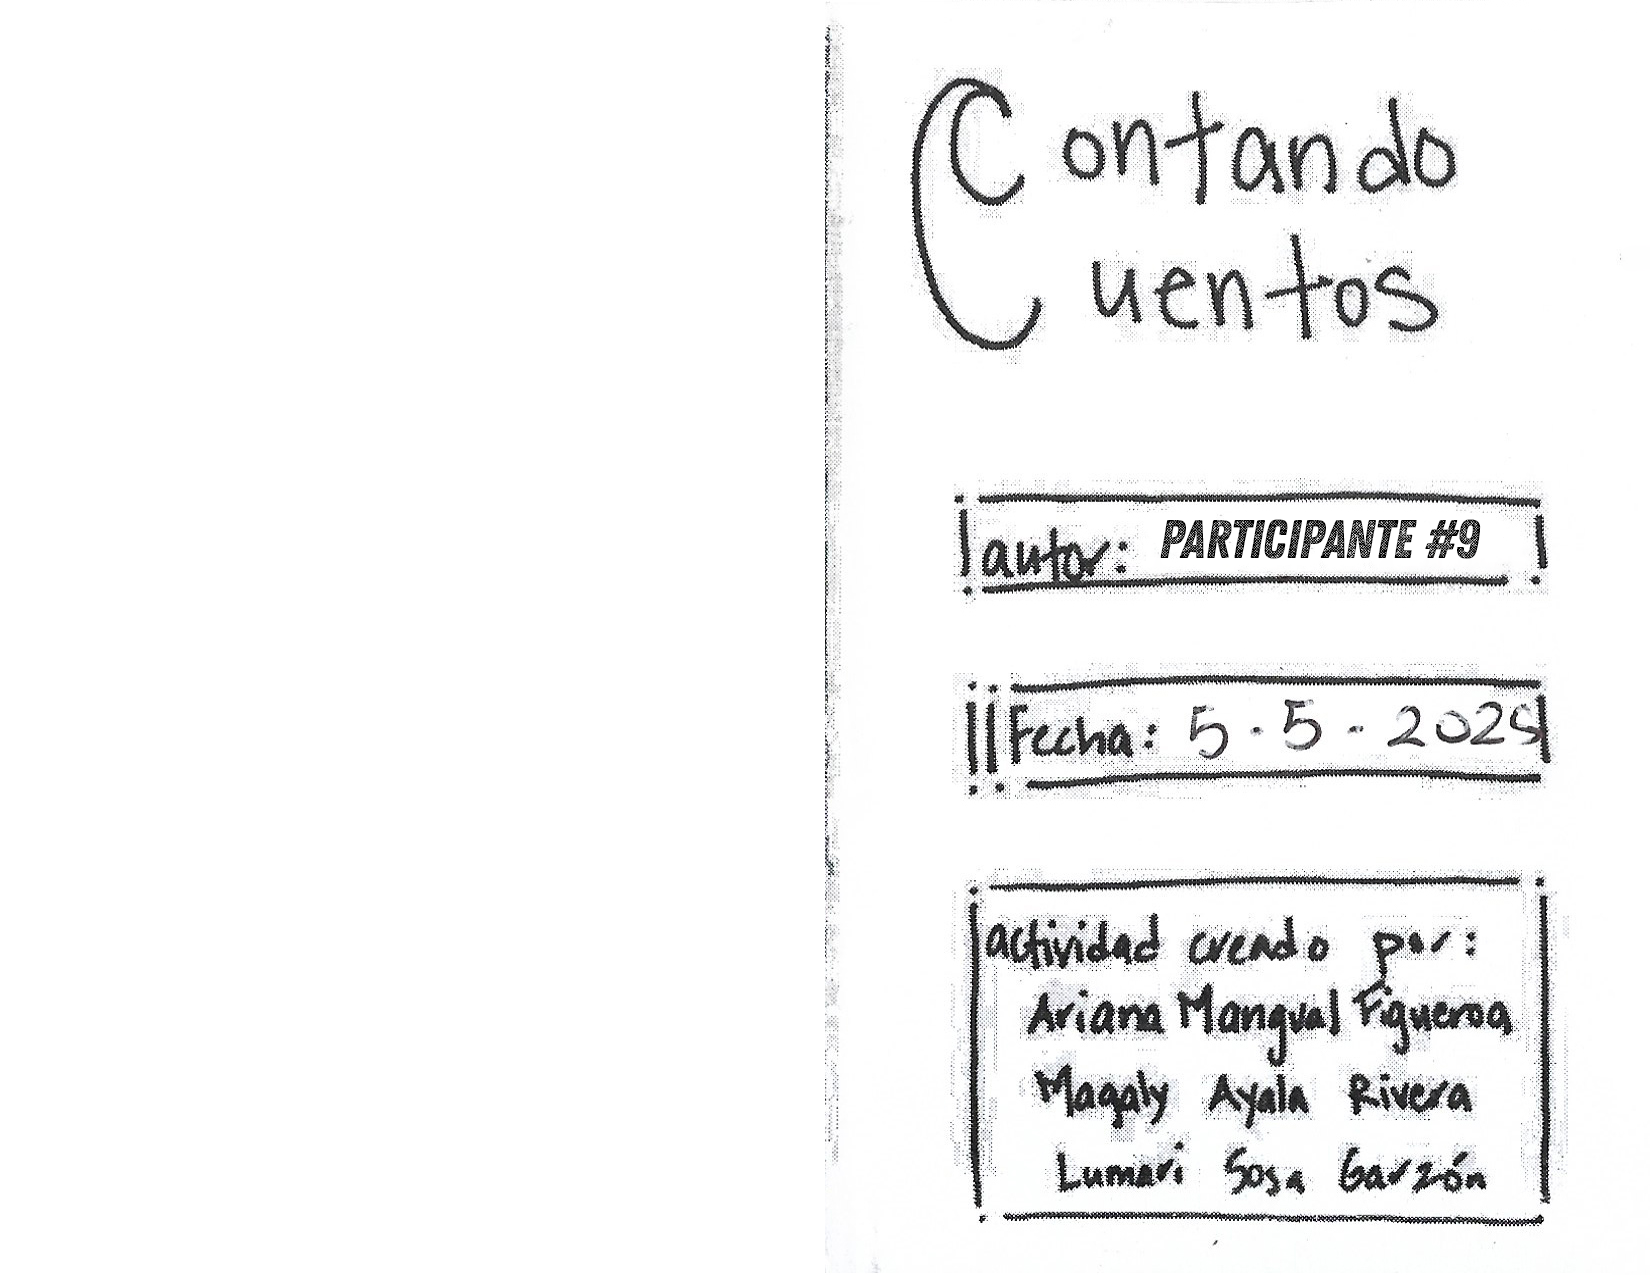 Contando
Cuentos
autor: PARTICIPANTE #9
Fecha: 5 - 5 - 2025
actividad creado por:
Ariana Mangual Figueroa
Magaly Ayala Rivera
Lumari Sosa Garzón